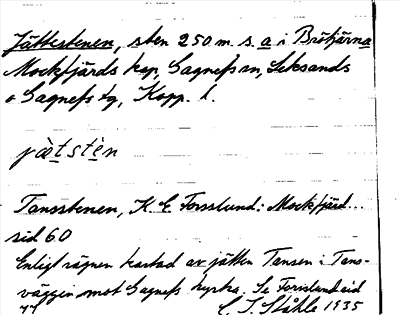 Jättestenen, sten 250 m. s. a i Brötjärna
Mockfjärds kap, Gagnefs sn, Leksands
o Gagnefs tg, Kopp. l.
jætstèn
Tansstenen, K. E. Forsslund: Mockfjärd...
sid 60
Enligt sägnen kastad av jätten Tansen i Tans-
väggen mot Gagnefs kyrka. Se Forsslund sid
77
C. I. Ståhle 1935